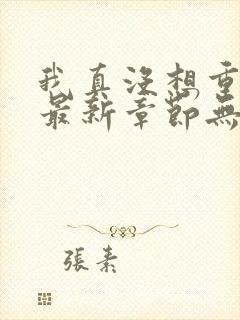 我真沒想重
最新章節無
張素